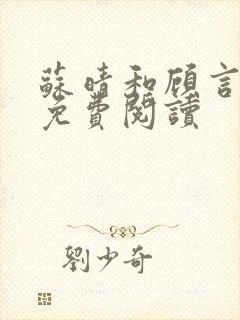 蘇晴和顾言
免費閱讀
劉少奇